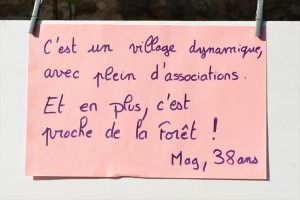 C'est un village dynamique,
avec plein d'associations.
Et en plus, c'est
proche de la forêt !
Mag, 38 ans